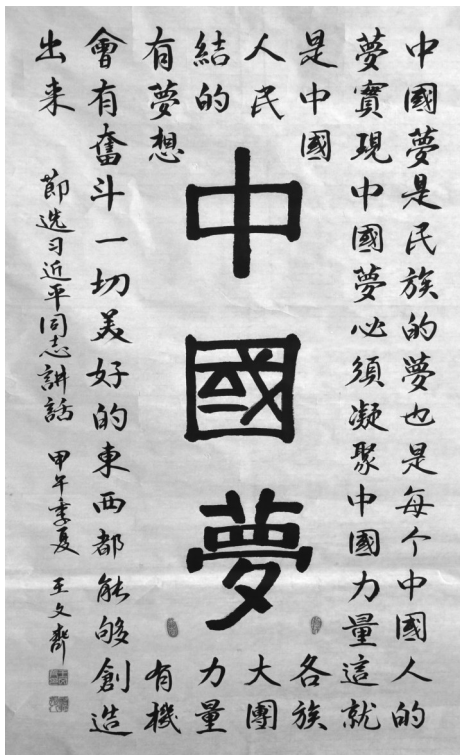 中國夢是民族的夢也是每个中國人的
夢實現中國夢必須凝聚中國力量這就
是中國各族
人民大團
結的力量
有夢想有機
會有奮斗一切美好的東西都能够創造
出来
中國夢
節选习近平同志講話 甲午季夏 王文齊